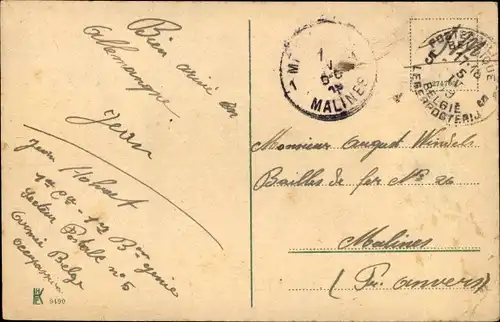 Bien arrivé en
Allemagne.
Jean
Jean
1re Cie - 1er Bon génie
Secteur Postale no 5
Armée Belge
occupation
9490
MALINES
1
V
POSTES
BELGIQUE
BELGIË
LEGERPOSTERIJ
5
Monsieur August Windels
Bailles de fer No 26
Malines
(Pr. Anvers)